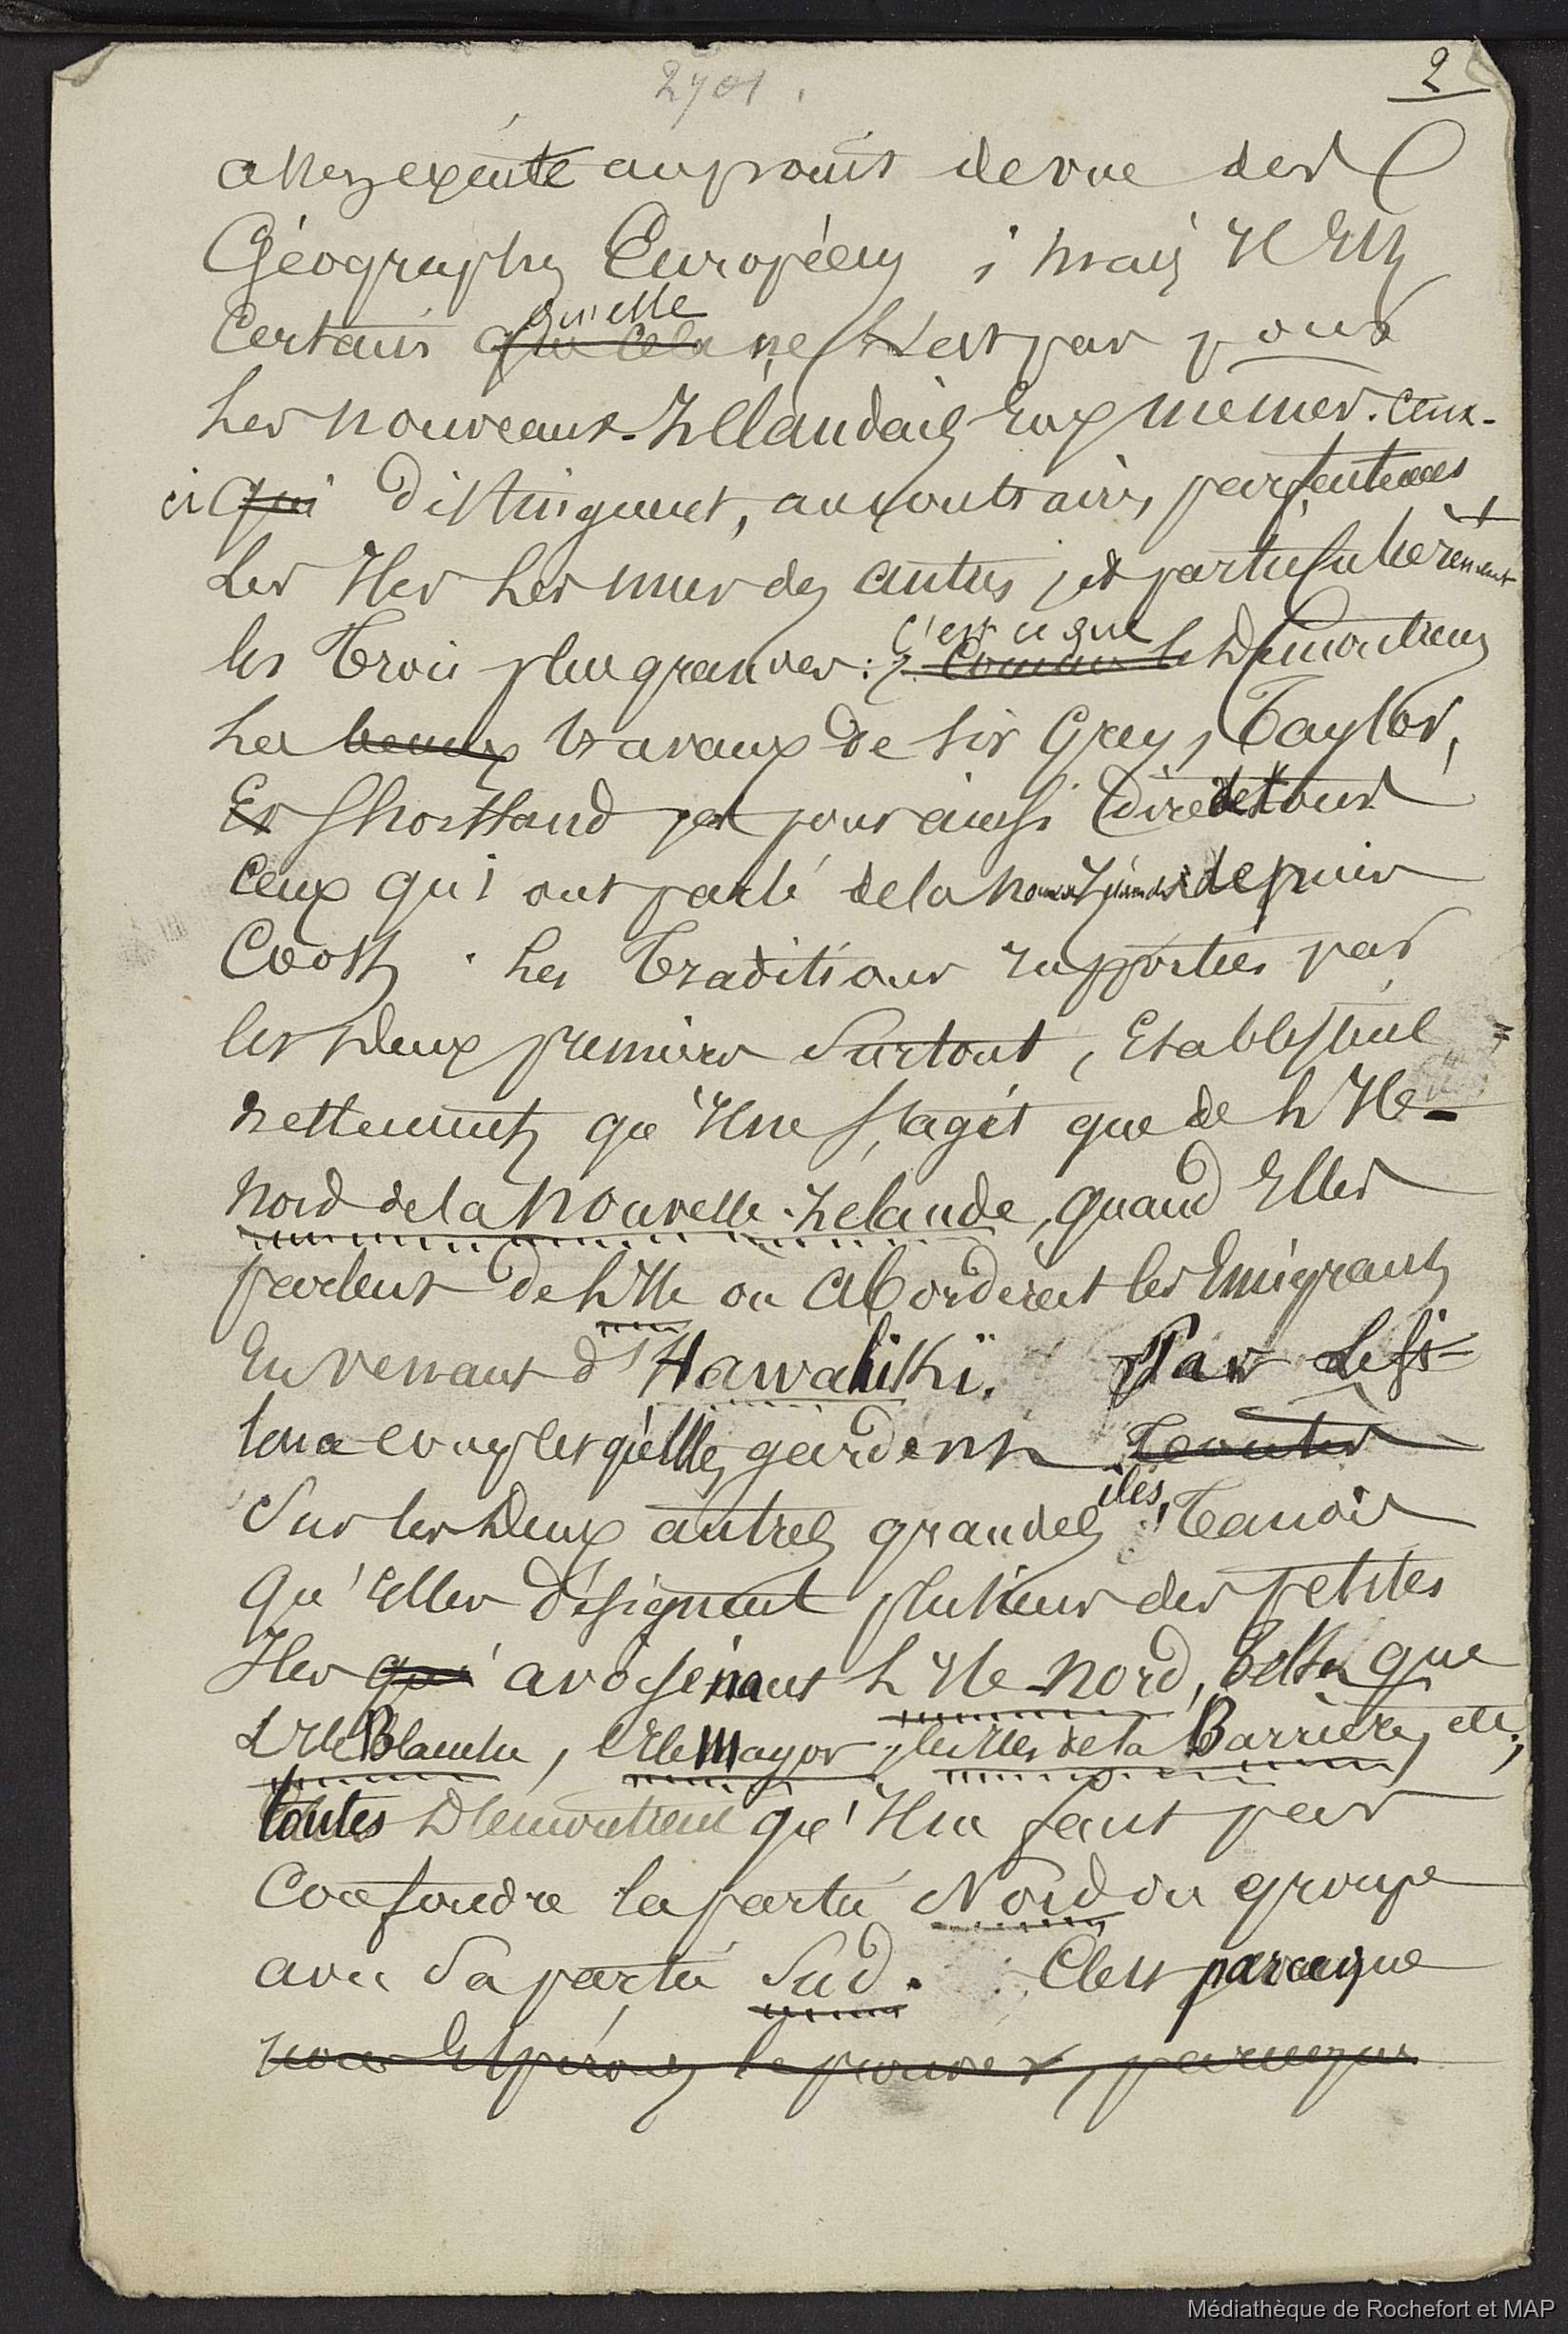 2701.
2
assez exacte au point de vue des
Géographes Européens ; mais il est
qu'elle
certain que cela ne l'est pas pour
les nouveaux-Zélandais eux mêmes. Ceux-
ci qui distinguent, au contraire, parfaitement
les Iles les unes des autres, et particulièrement
c'est ce que
les trois plus grandes : comme le démontrent
les beaux travaux de Sir Grey, Taylor,
Et Shortland et pour ainsi dire de tous
ceux qui ont parlé de la Nouvelle Zélande depuis
Cook. Les traditions rapportées par
les deux premiers surtout, établissent
nettement qu'il ne s'agit que de l'Ile-
Nord de la Nouvelle-Zélande, quand elles
parlent de l'Ile où abordèrent les Emigrants
en venant d'Hawahiki. Par le si-
lence complet qu'elles gardent
îles,
sur les deux autres grandes tandis
qu'elles désignent plusieurs des petites
Iles qui avoisinant l'Ile-Nord, telles que
L'Ile Blanche, l'Ile Mayor, les Iles de la Barrière, etc.,
toutes démontrent qu'il ne faut pas
confondre la partie Nord du groupe
avec sa partie Sud. C'est parce que
nous espérons le prouver, parce que
Médiathèque de Rochefort et MAP